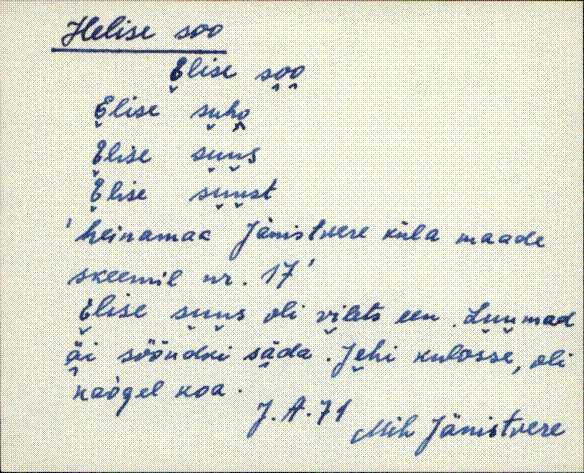 Helise soo
Elise soo
Elise suho
Elise suus
Elise suust
'heinamaa Jänistvere küla maade
skeemil nr. 17'
Elise suus oli vilets een. Luumad
äi sööndki säda. Jehi kulosse, oli
naõgel koa.
J. A. 71
Mih Jänistvere